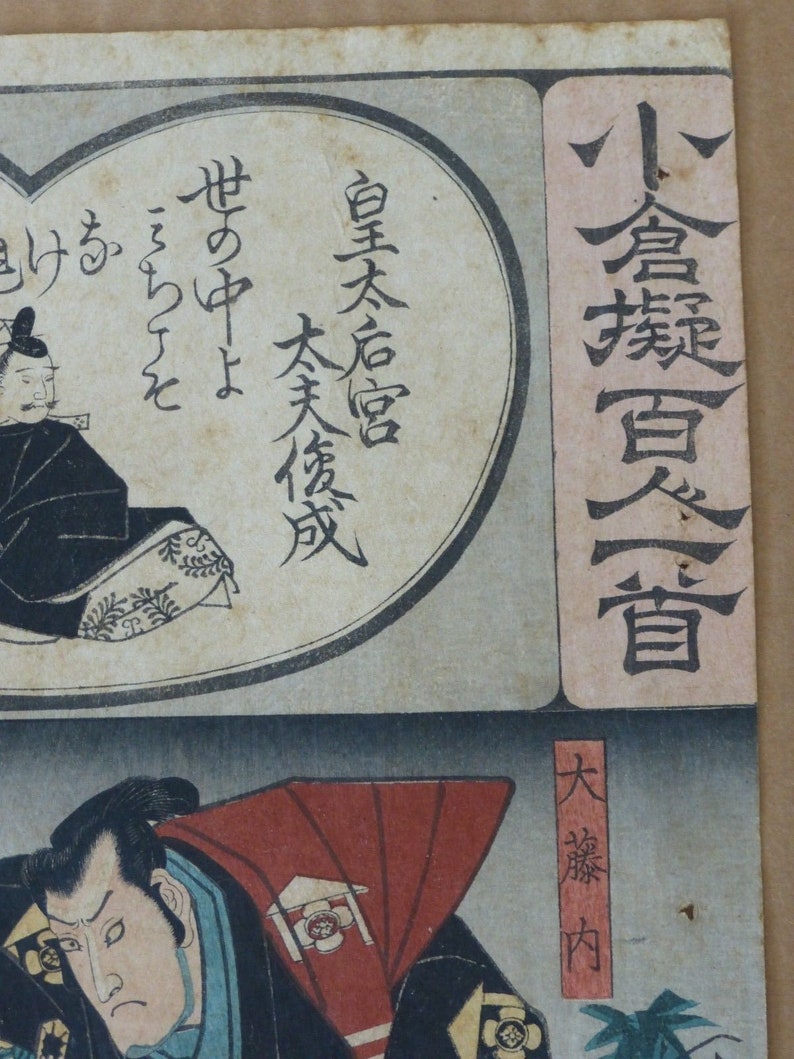 小倉擬百人一首
皇太后宮
太夫俊成
世の中よ
みちこそ
なけ
大藤内